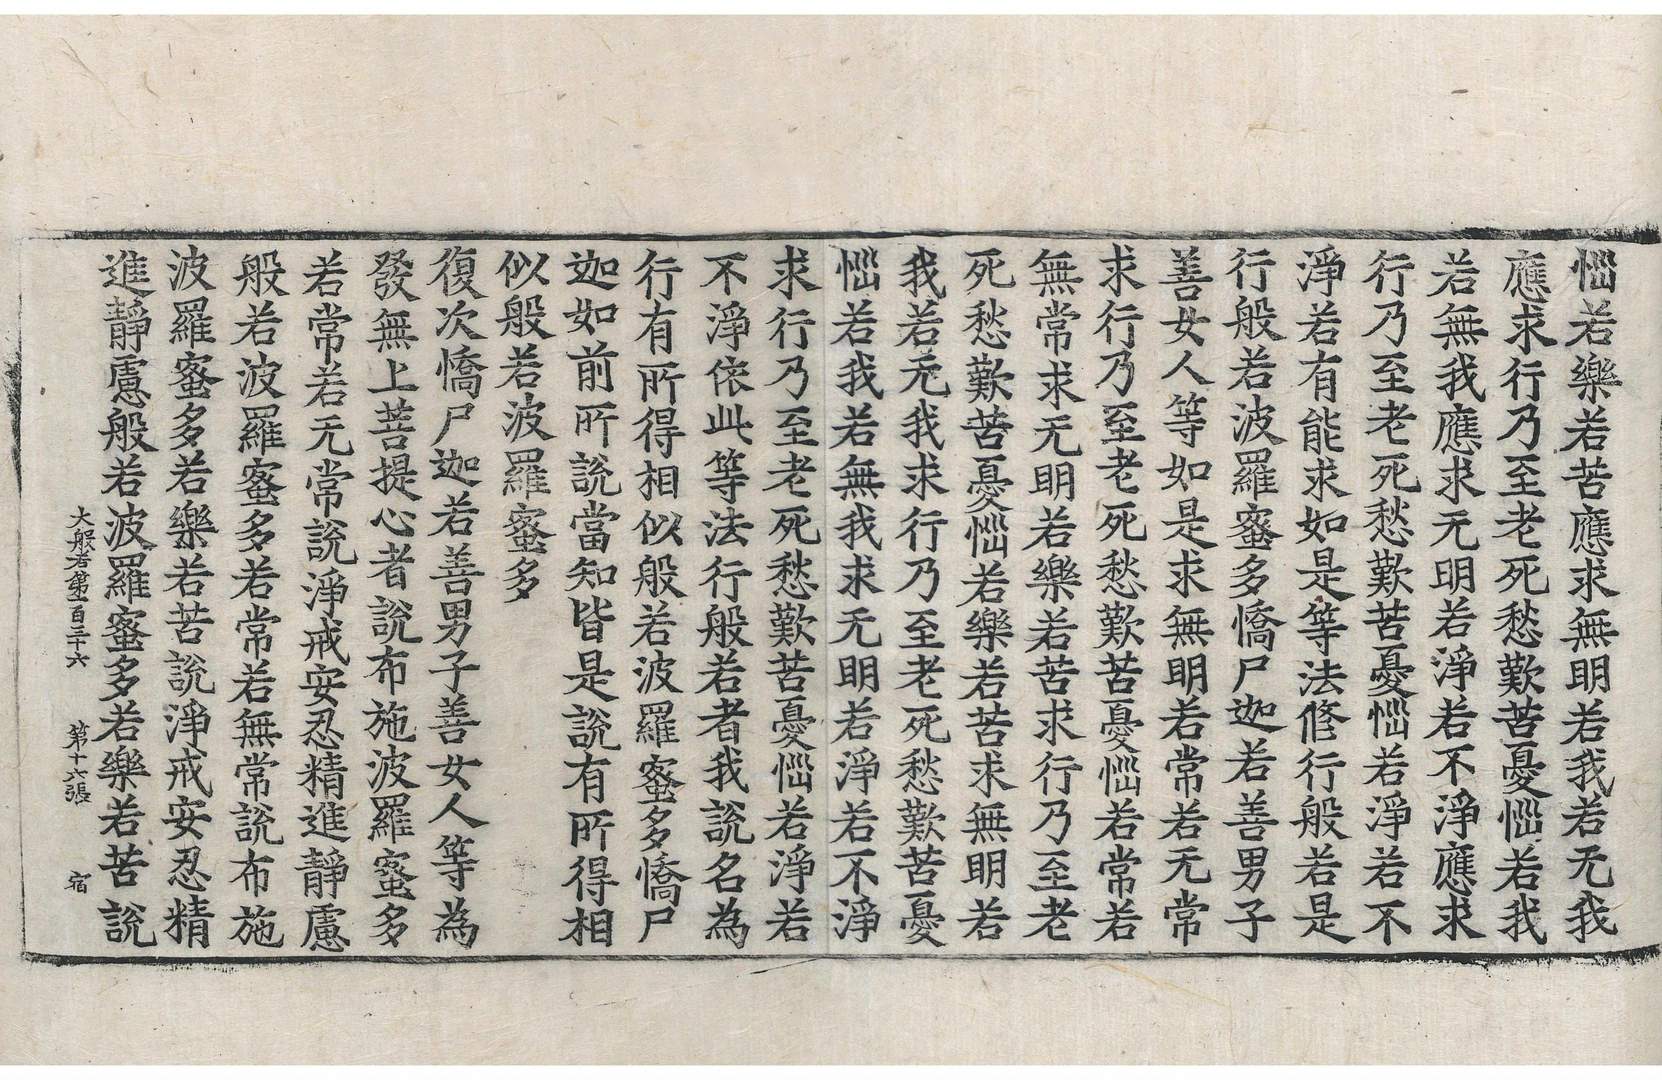 惱若樂若苦應求無明若我若无我
應求行乃至老死愁歎苦憂惱若我
若無我應求无明若淨若不淨應求
行乃至老死愁歎苦憂惱若淨若不
淨若有能求如是等法修行般若是
行般若波羅蜜多憍尸迦若善男子
善女人等如是求無明若常若无常
求行乃至老死愁歎苦憂惱若常若
無常求无明若樂若苦求行乃至老
死愁歎苦憂惱若樂若苦求無明若
我若无我求行乃至老死愁歎苦憂
惱若我若無我求无明若淨若不淨
求行乃至老死愁歎苦憂惱若淨若
不淨依此等法行般若者我說名為
行有所得相似般若波羅蜜多憍尸
迦如前所說當知皆是說有所得相
似般若波羅蜜多
復次憍尸迦若善男子善女人等為
發無上菩提心者說布施波羅蜜多
若常若无常說淨戒安忍精進靜慮
般若波羅蜜多若常若無常說布施
波羅蜜多若樂若苦說淨戒安忍精
進靜慮般若波羅蜜多若樂若苦說
大般若第一百三十六 第十六張 宿